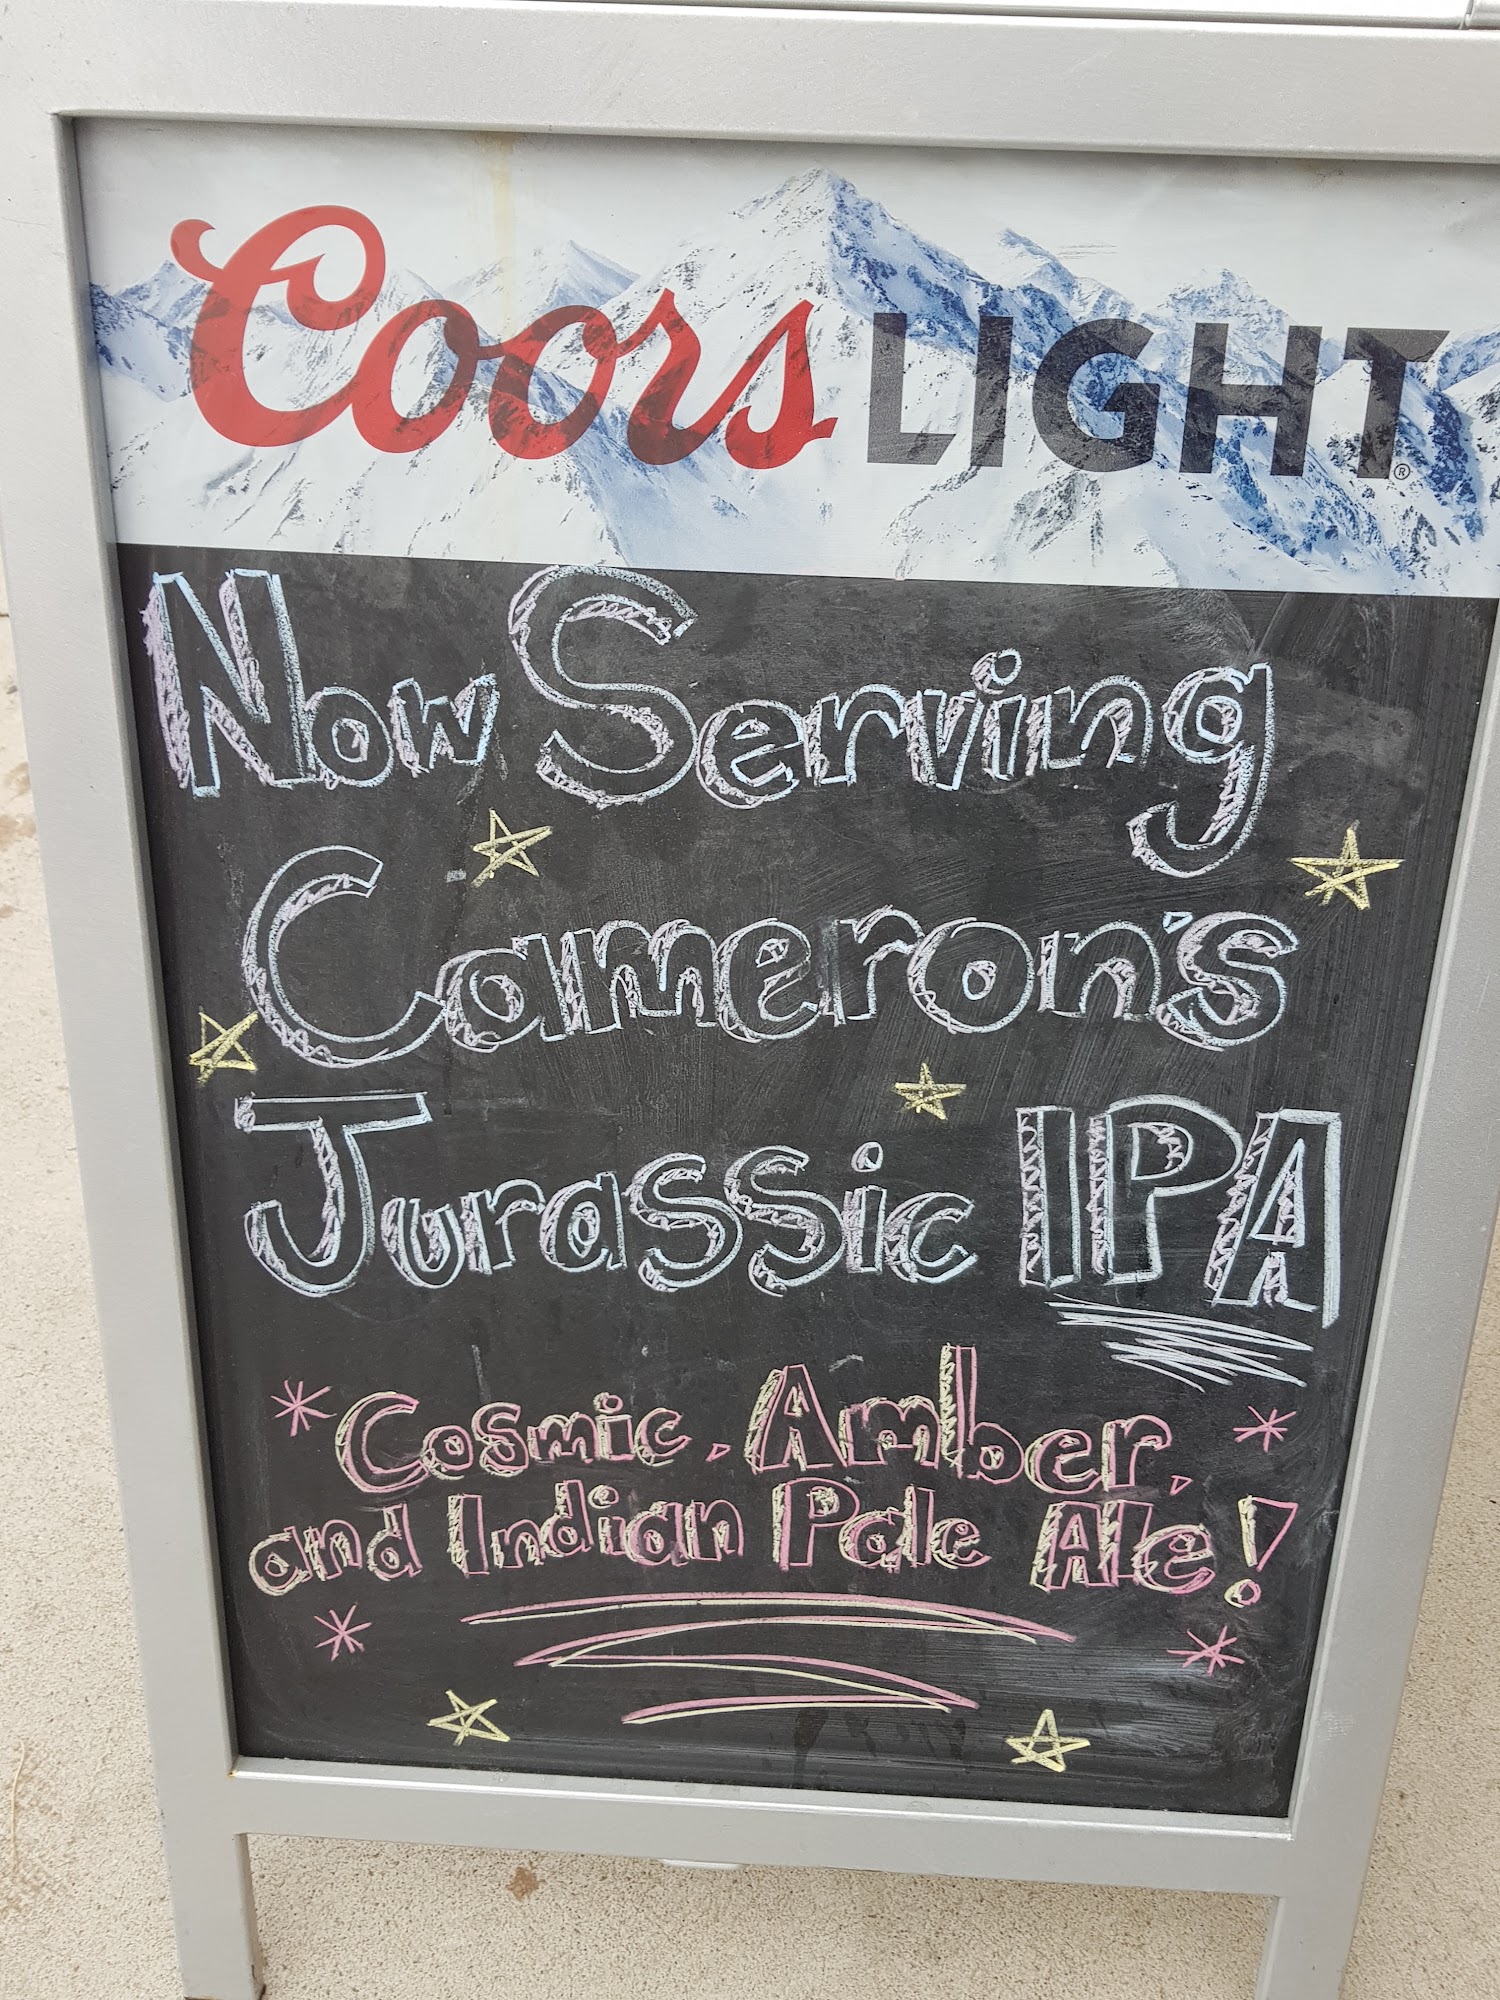 Coors LIGHT®
Now Serving
Cameron's
Jurassic IPA
*Cosmic, Amber, *
and Indian Pale Ale!
* *